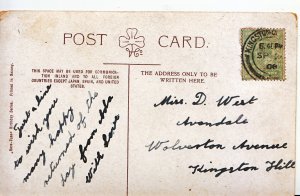 POST CARD.
THIS SPACE MAY BE USED FOR COMMUNICA-
TION INLAND AND TO ALL FOREIGN
COUNTRIES EXCEPT JAPAN, SPAIN, AND UNITED
STATES.
THE ADDRESS ONLY TO BE
WRITTEN HERE.
Just a line
to wish you
many happy
returns of the
day from Ada
with love
Miss. D. West
Avondale
Wolverton Avenue
Kingston Hill
KINGSTON
SP
06